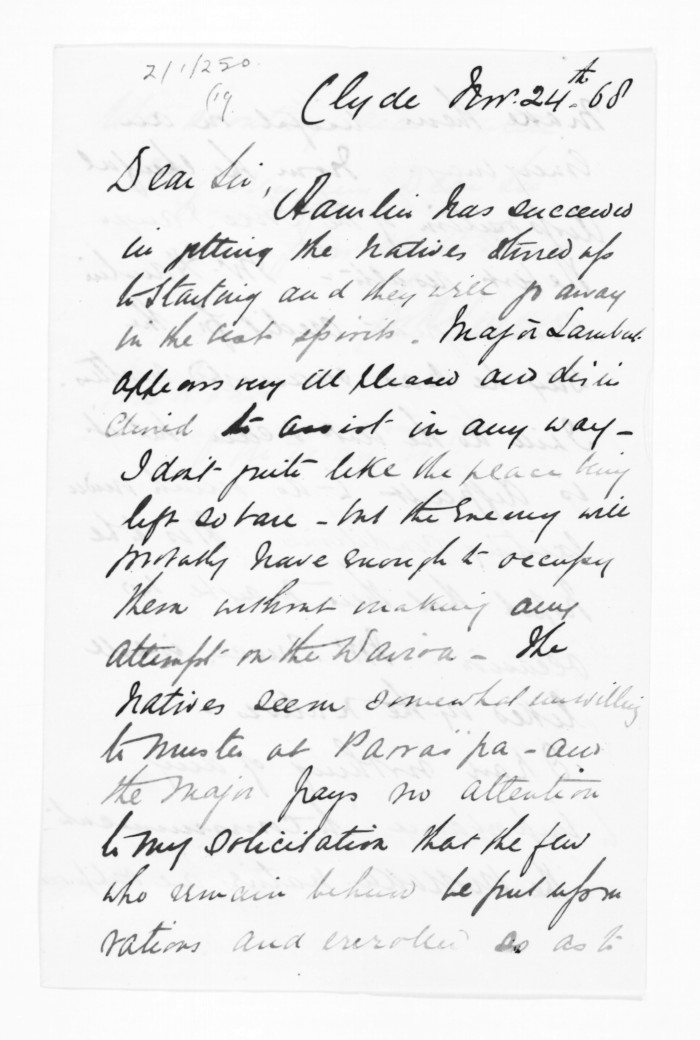 2/1/250.
Clyde Nov. 24th. 68
Dear Sir,
Hamlin has succeeded
in getting the natives stirred up
to starting and they will go away
in the best spirits. Major Lambert
appears very ill pleased and disin
clined to assist in any way –
I don't quite like the place being
left so bare – but the Enemy will
probably have enough to occupy
them without making any
attempt on the Wairoa – The
Natives seem somewhat unwilling
to muster at pa – and
the Major pays no attention
to my solicitation that the few
who remain behind be put upon
rations and enrolled so as to